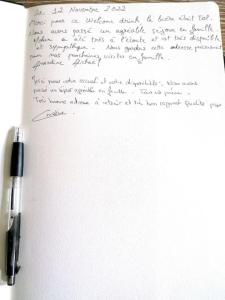 12 Novembre 2022
Merci pour ce Welcome drink la bière était top.
Nous avons passé un agréable séjour en famille
a été très à l'écoute et est très disponible
et sympathique. Nous gardons cette adresse précieusement
pour nos prochaines visites en famille.
pour votre accueil et votre disponibilité. Nous avons
passé un séjour agréable en famille.
Très bonne adresse à retenir et très bon rapport qualité prix